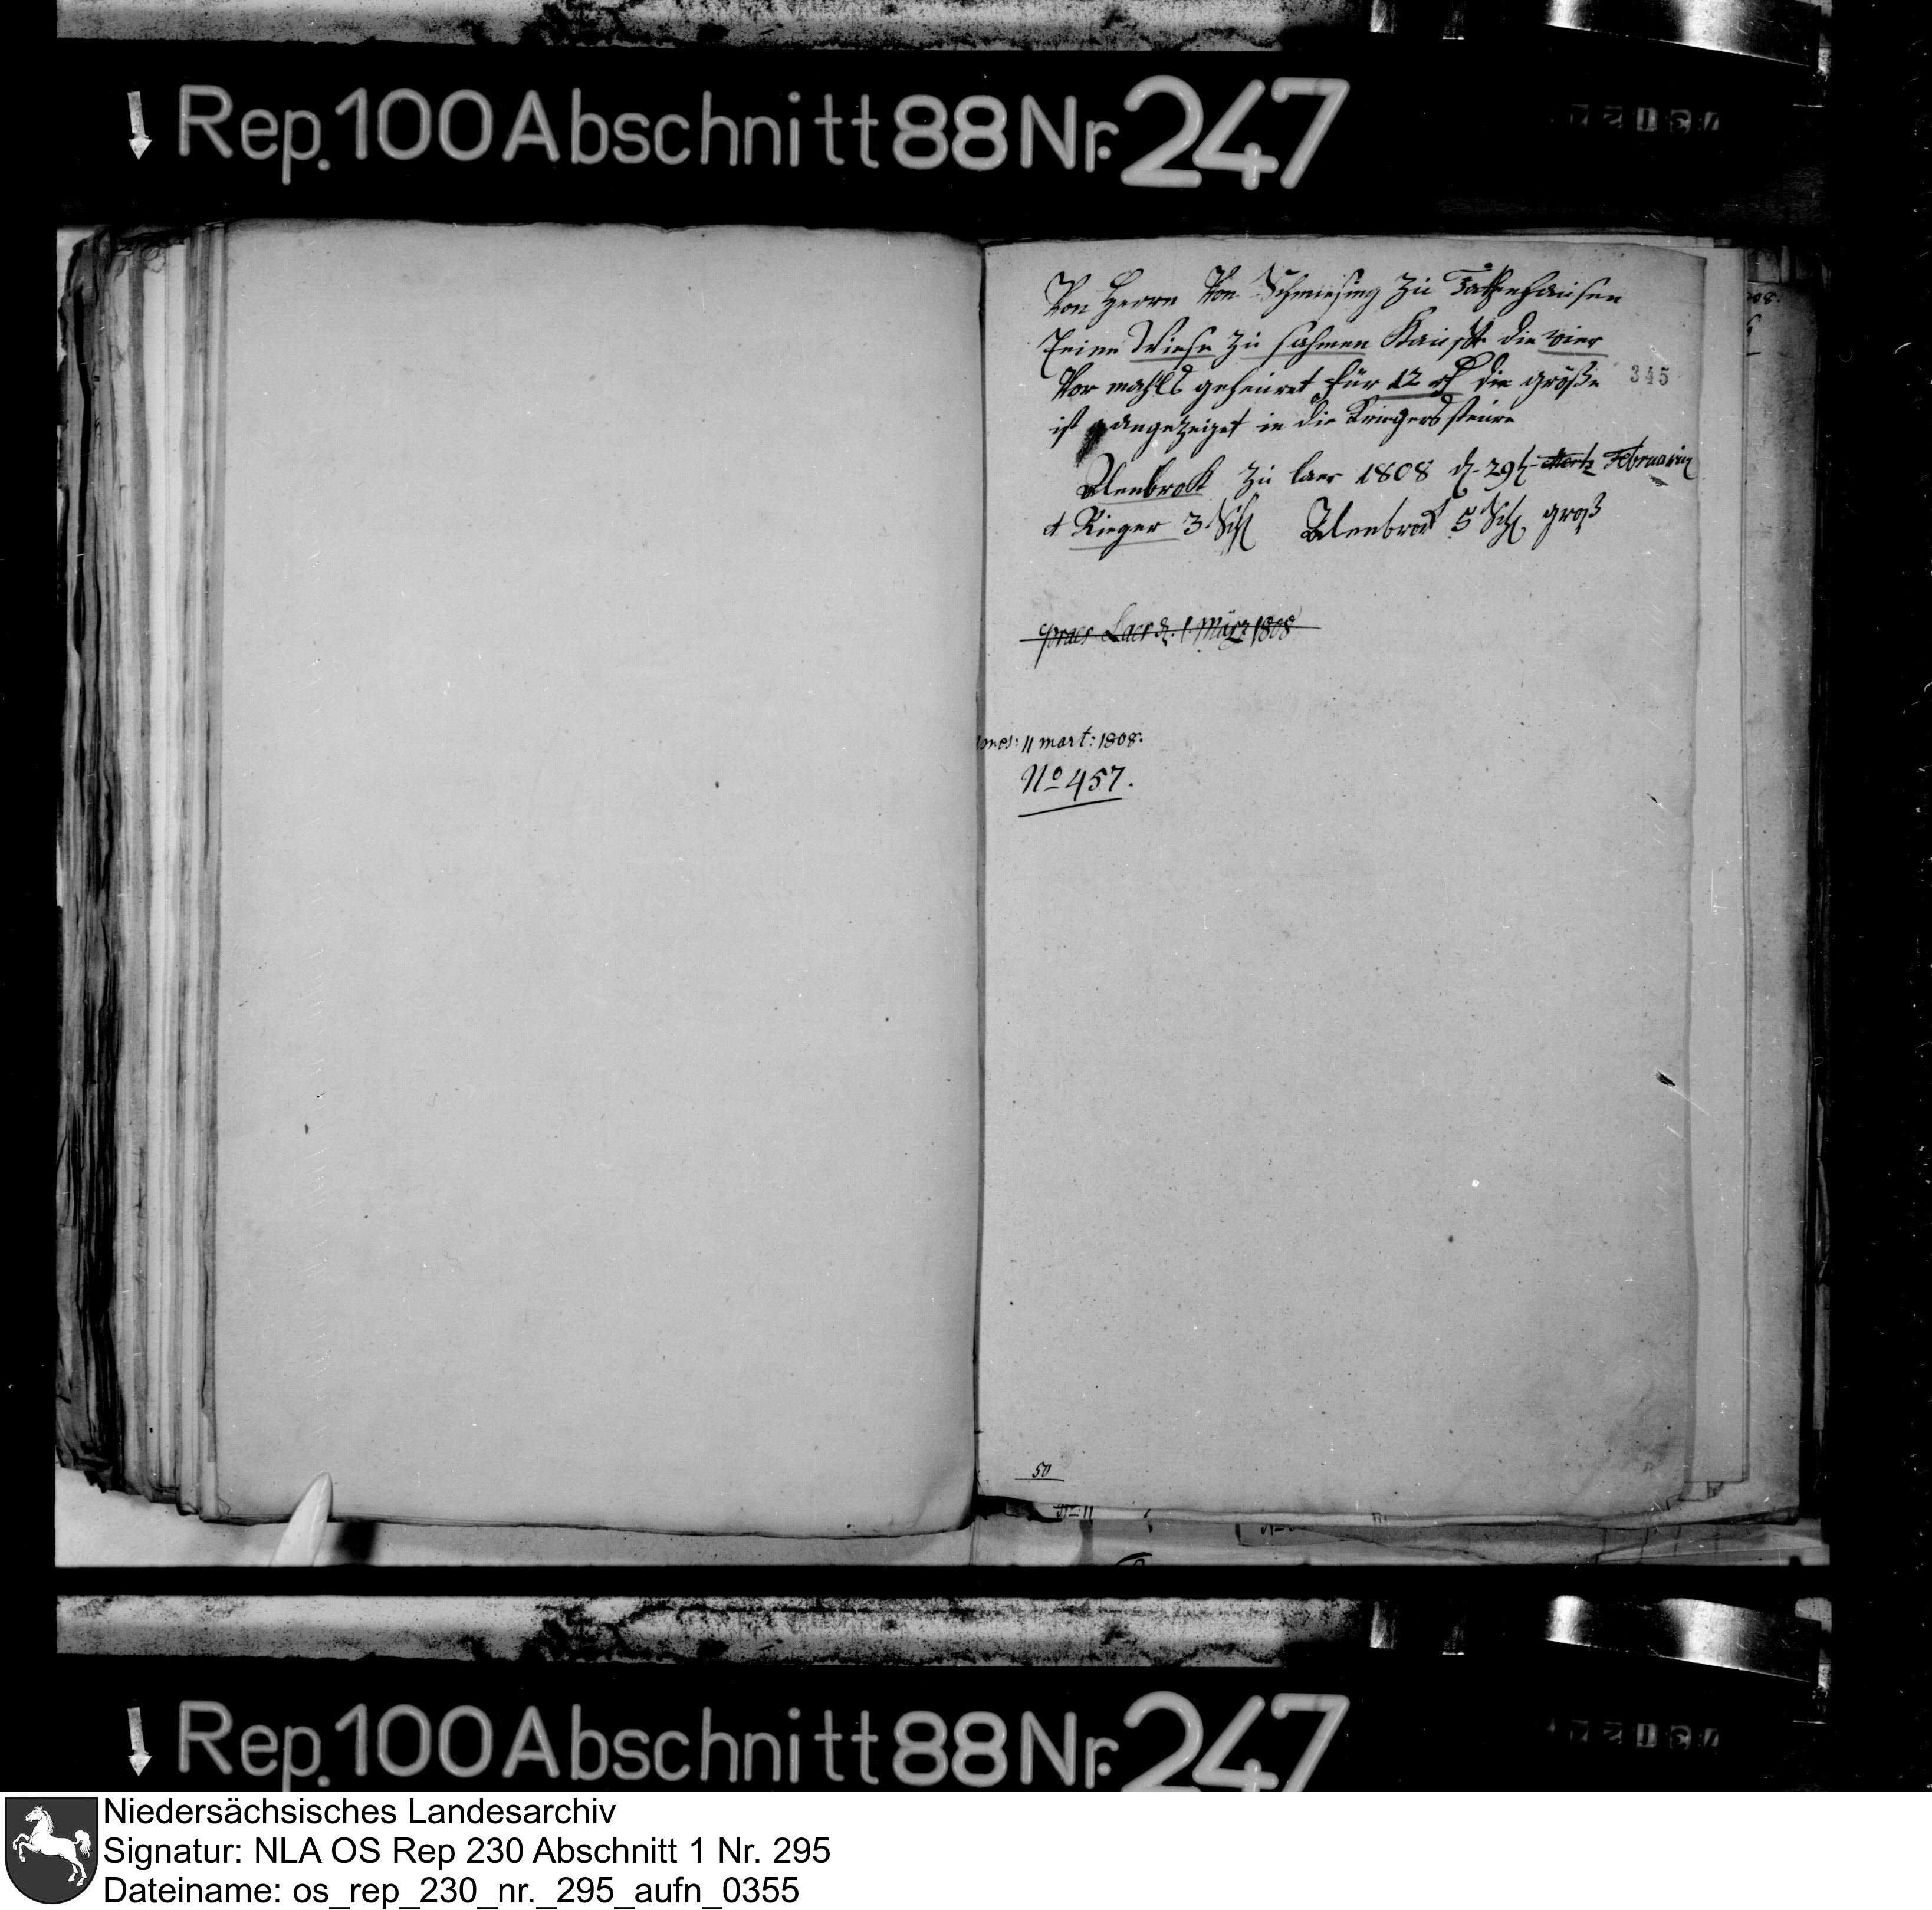 Rep. 100 Abschnitt 88 Nr. 247
Von Herrn Von Schmiesing zu Tattenhausen
Eeine Wiese zu sahmen Kauft die wier
Vor mahls geheuret für 12 rt die größe
345
ist angezeiget in die Kriegers steure
Ulenbrok zu laer 1808 d. 29t. Mertz Februarius
et Rieger 3 Sch Ulenbrock 5 Sch groß
praes Laer d. 1. März 1808
11 mart: 1808.
No 457.
50
Rep. 100 Abschnitt 88 Nr. 247
Niedersächsisches Landesarchiv
Signatur: NLA OS Rep 230 Abschnitt 1 Nr. 295
Dateiname: os_rep_230_nr._295_aufn_0355